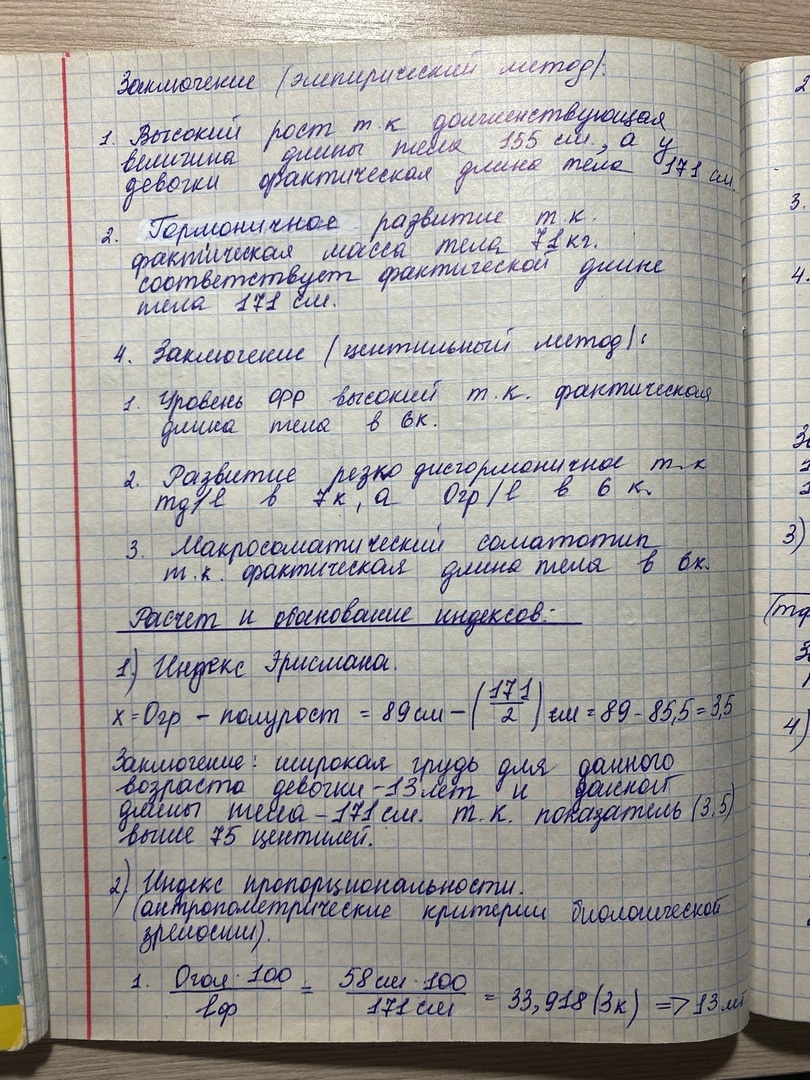 Заключение (эмпирический метод):
1. Высокий рост т.к долженствующая
величина длины тела 155 см, а у
девочки фактическая длина тела 171 см
2. Гормоничное развитие т.к.
фактическая масса тела 71 кг.
соответствует фактической длине
тела 171 см.
4. Заключение (центильный метод):
1. Уровень ФР высокий т.к. фактическая
длина тела в 6к.
2. Развитие резко дисгормоничное т.к
mд/l в 7к, а Огр/l в 6 к.
3. Макросоматический соматотип
т.к. фактическая длина тела в 6к.
Расчет и обоснование индексов:
1) Индекс Эрисмана.
x = Огр - полурост = 89 см - (171/2) см = 89 - 85,5 = 3,5
Заключение: широкая грудь для данного
возраста девочки - 13 лет и данной
длины тела - 171 см. т.к. показатель (3,5)
выше 75 центилей.
2) Индекс пропорциональности.
(антропометрические критерии биологической
зрелости).
1. Огол · 100 / lф = 58 см · 100 / 171 см = 33,918 (3к) => 13 лет
2
3.
4.
3)
4)